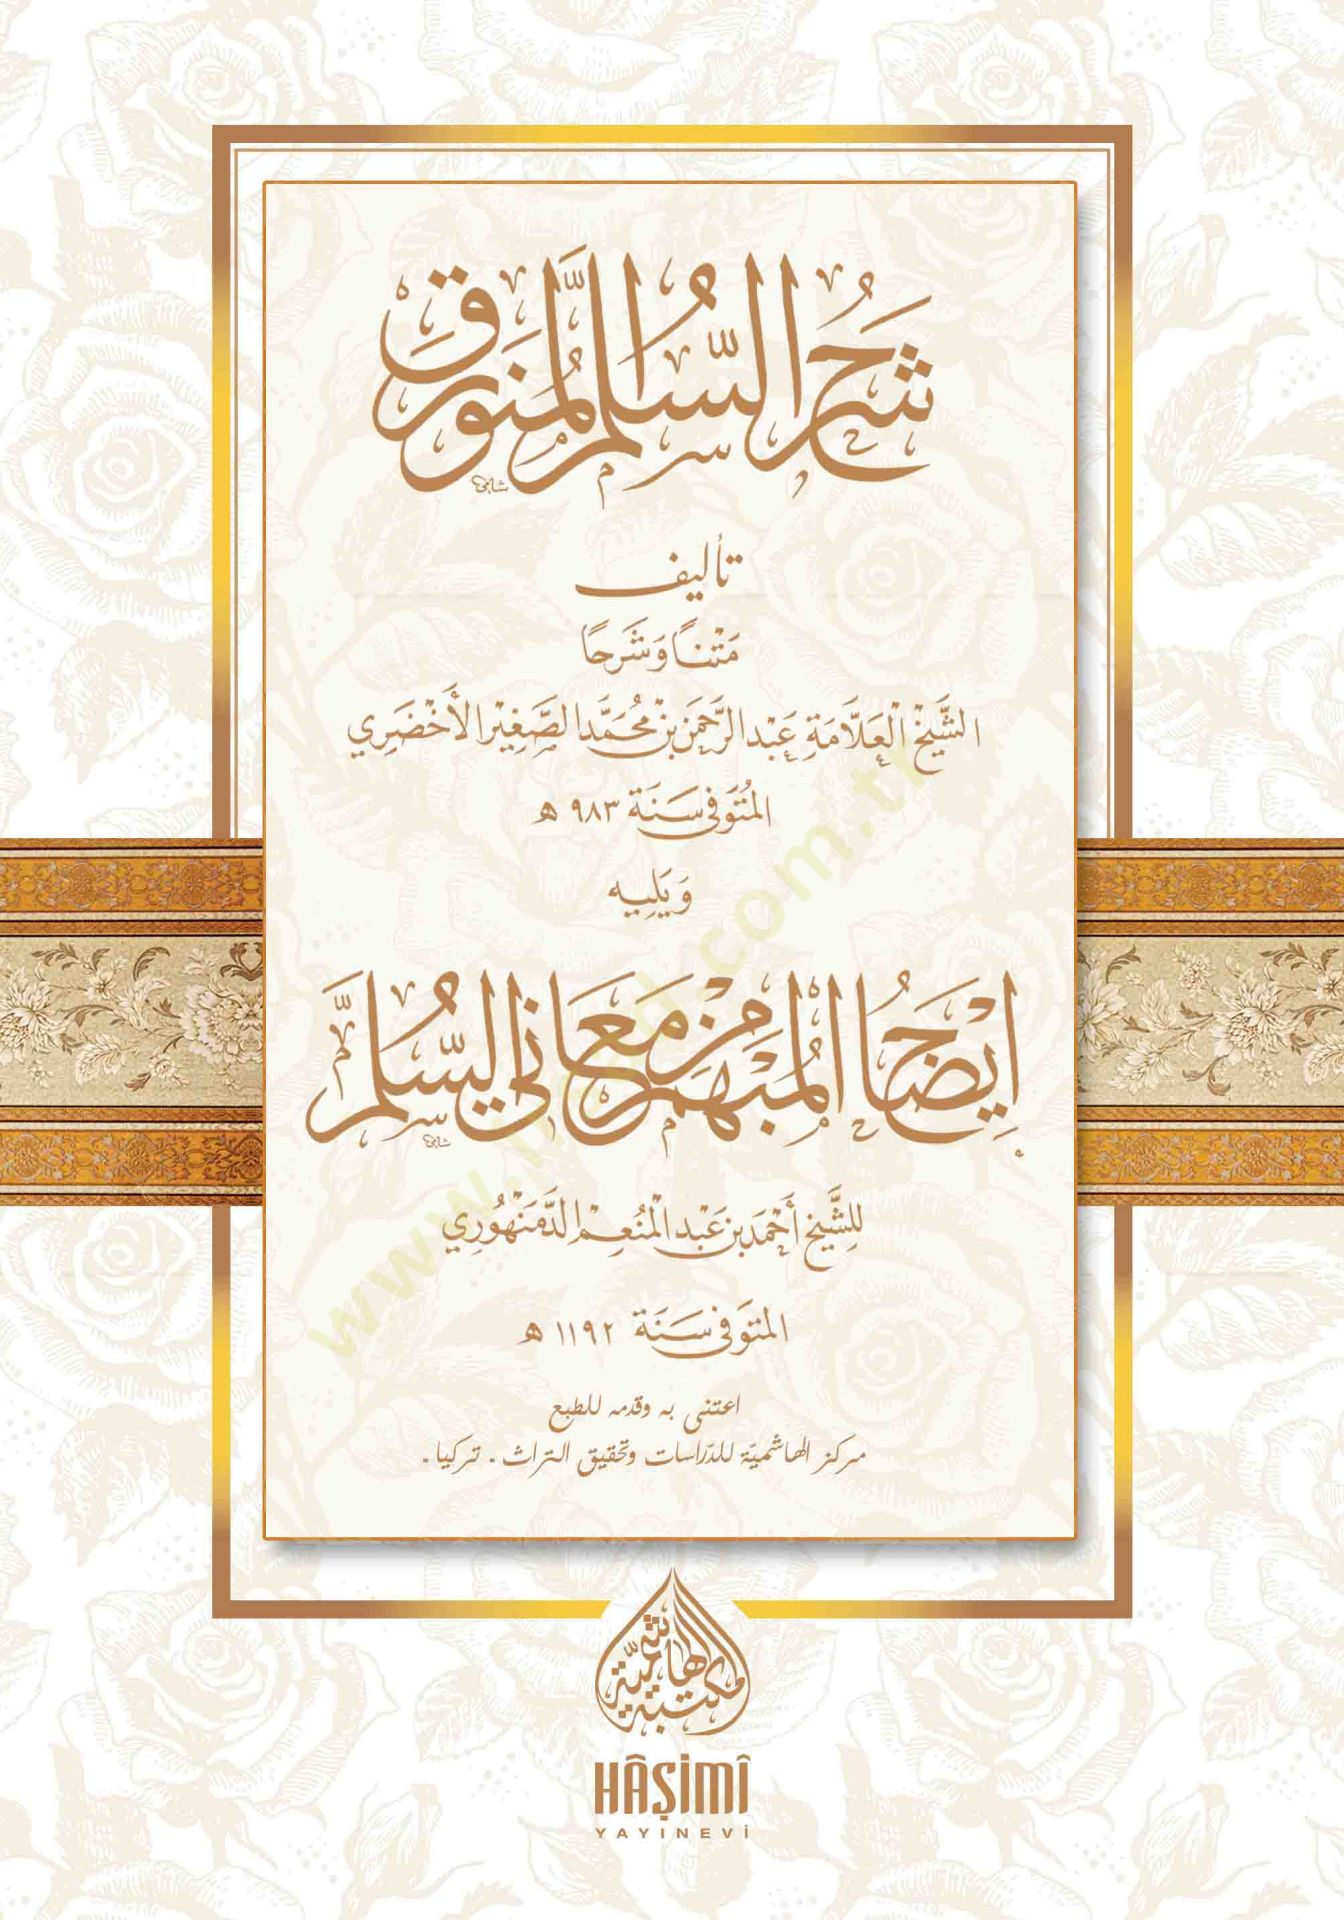 شَرْحُ السُّلَّمِ الْمُنَوْرَقِ
تأليف
مَتْنًا وَشَرْحًا
الشَّيْخِ الْعَلَّامَةِ عَبْدِ الرَّحْمَنِ بْنِ مُحَمَّدٍ الصَّغِيْرِ الأَخْضَرِي
المُتَوَفى سَنَة ٩٨٣ ھ
وَيَلِيه
إِيْضَاحُ الْمُبْهَمِ مِنْ مَعَانِي السُّلَّمِ
لِلشَّيْخِ أَحْمَد بْن عَبْدِ الْمُنْعِمْ الدَّمَنْهُورِي
المتوَفى سَنَة ١١٩٢ ھ
اعتنى به وقدمه للطبع
مركز الهاشميّة للدّراسات وتحقيق التراث . تركيا .
مكتبة الهاشمية
HÂŞİMÎ
YAYINEVİ